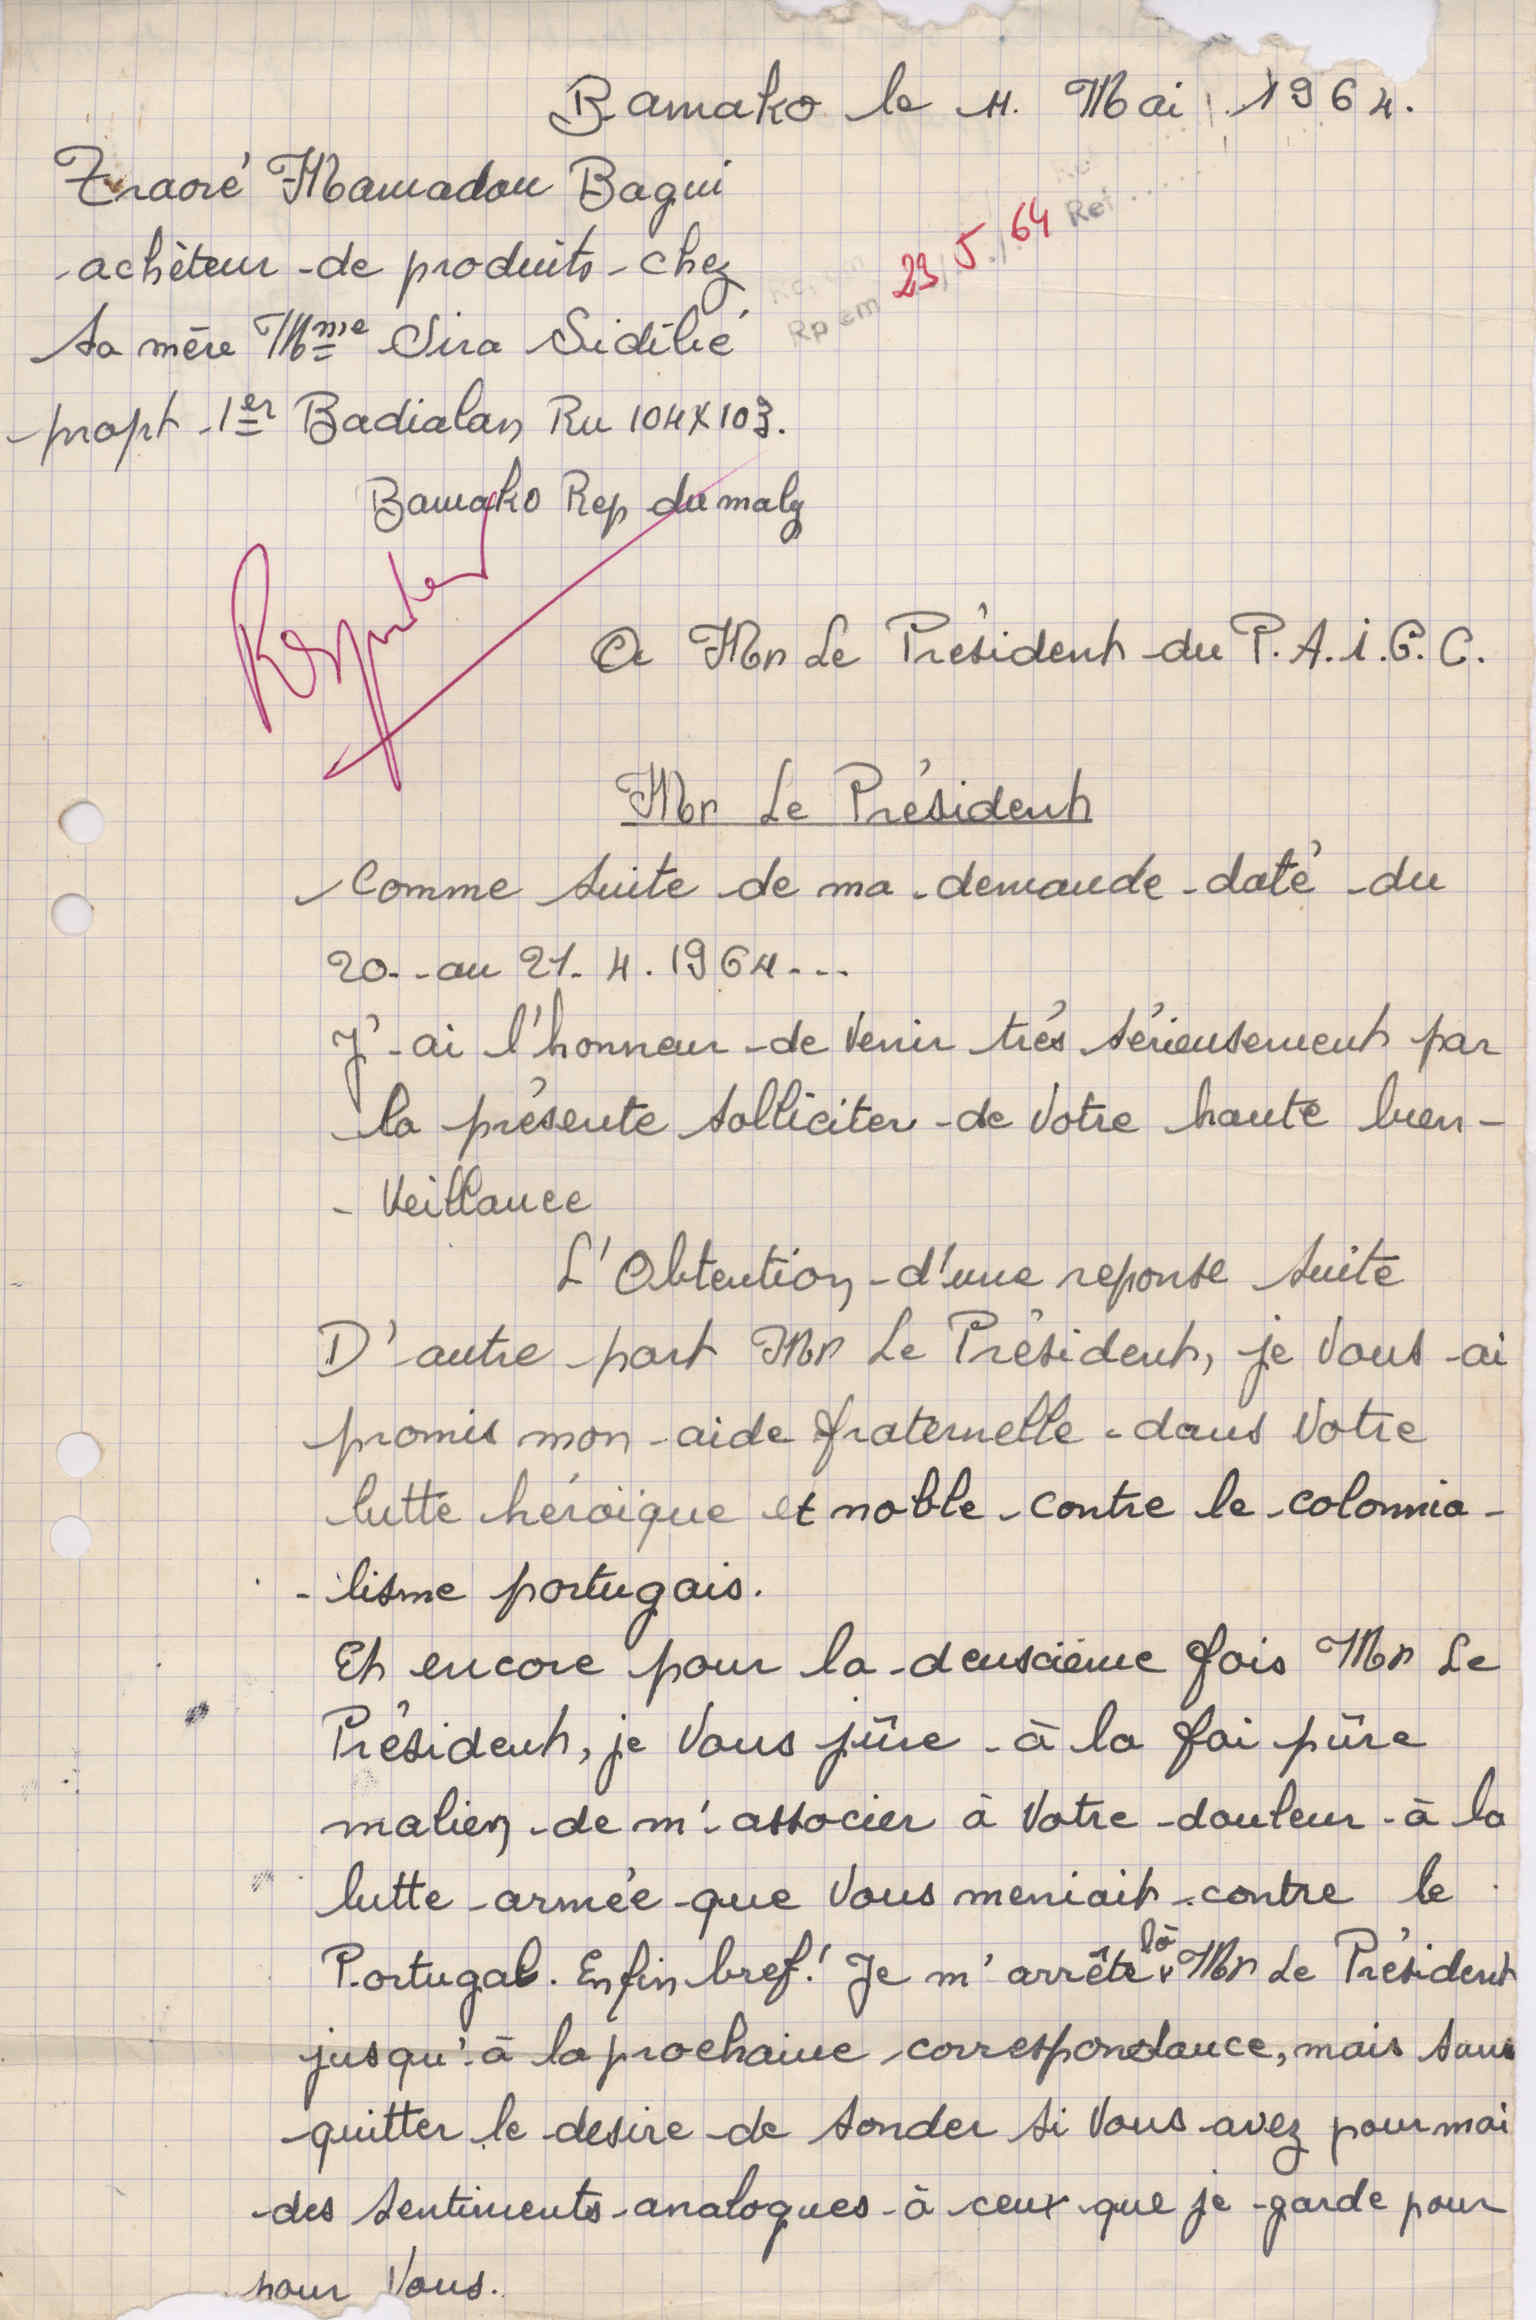 Bamako le 4. Mai 1964.
Traoré Mamadou Bagui
acheteur de produits chez
Sa mère Mme Sira Sidibé
propt 1er Badialan Ru 104X103.
Bamako Rep du maly
Rp em 29.5.64 Ref.....
Répondre
A Mr Le Président du P.A.I.G.C.
Mr Le Président
Comme suite de ma demande daté du
20. au 21. 4. 1964...
J'ai l'honneur de venir très sérieusement par
la présente solliciter de votre haute bien-
- veillance
L'Obtention d'une reponse suite
D'autre part Mr Le Président, je vous ai
promis mon aide fraternelle dans votre
lutte héroïque et noble contre le colonnia-
- lisme portugais.
Et encore pour la deuxième fois Mr Le
Président, je vous jûre à la foi pûre
malien de m'associer à votre douleur à la
lutte armée que vous meniait contre le
Portugal. Enfin bref! Je m'arrête là Mr Le Président
jusqu'à la prochaine correspondance, mais sans
quitter le desire de sonder si vous avez pour moi
des sentiments analogues à ceux que je garde pour
pour vous.